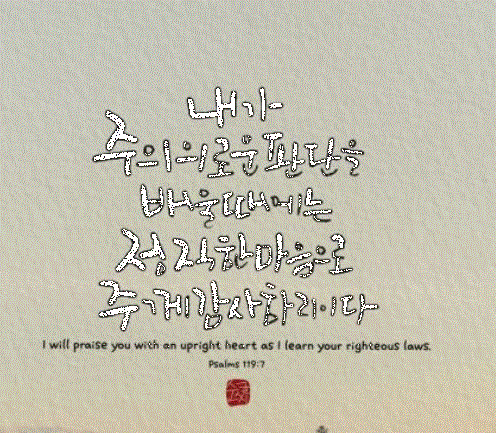 내가
주의 의로운 판단을
배울 때에는
정직한 마음으로
주께 감사하리이다
I will praise you with an upright heart as I learn your righteous laws.
Psalms 119:7